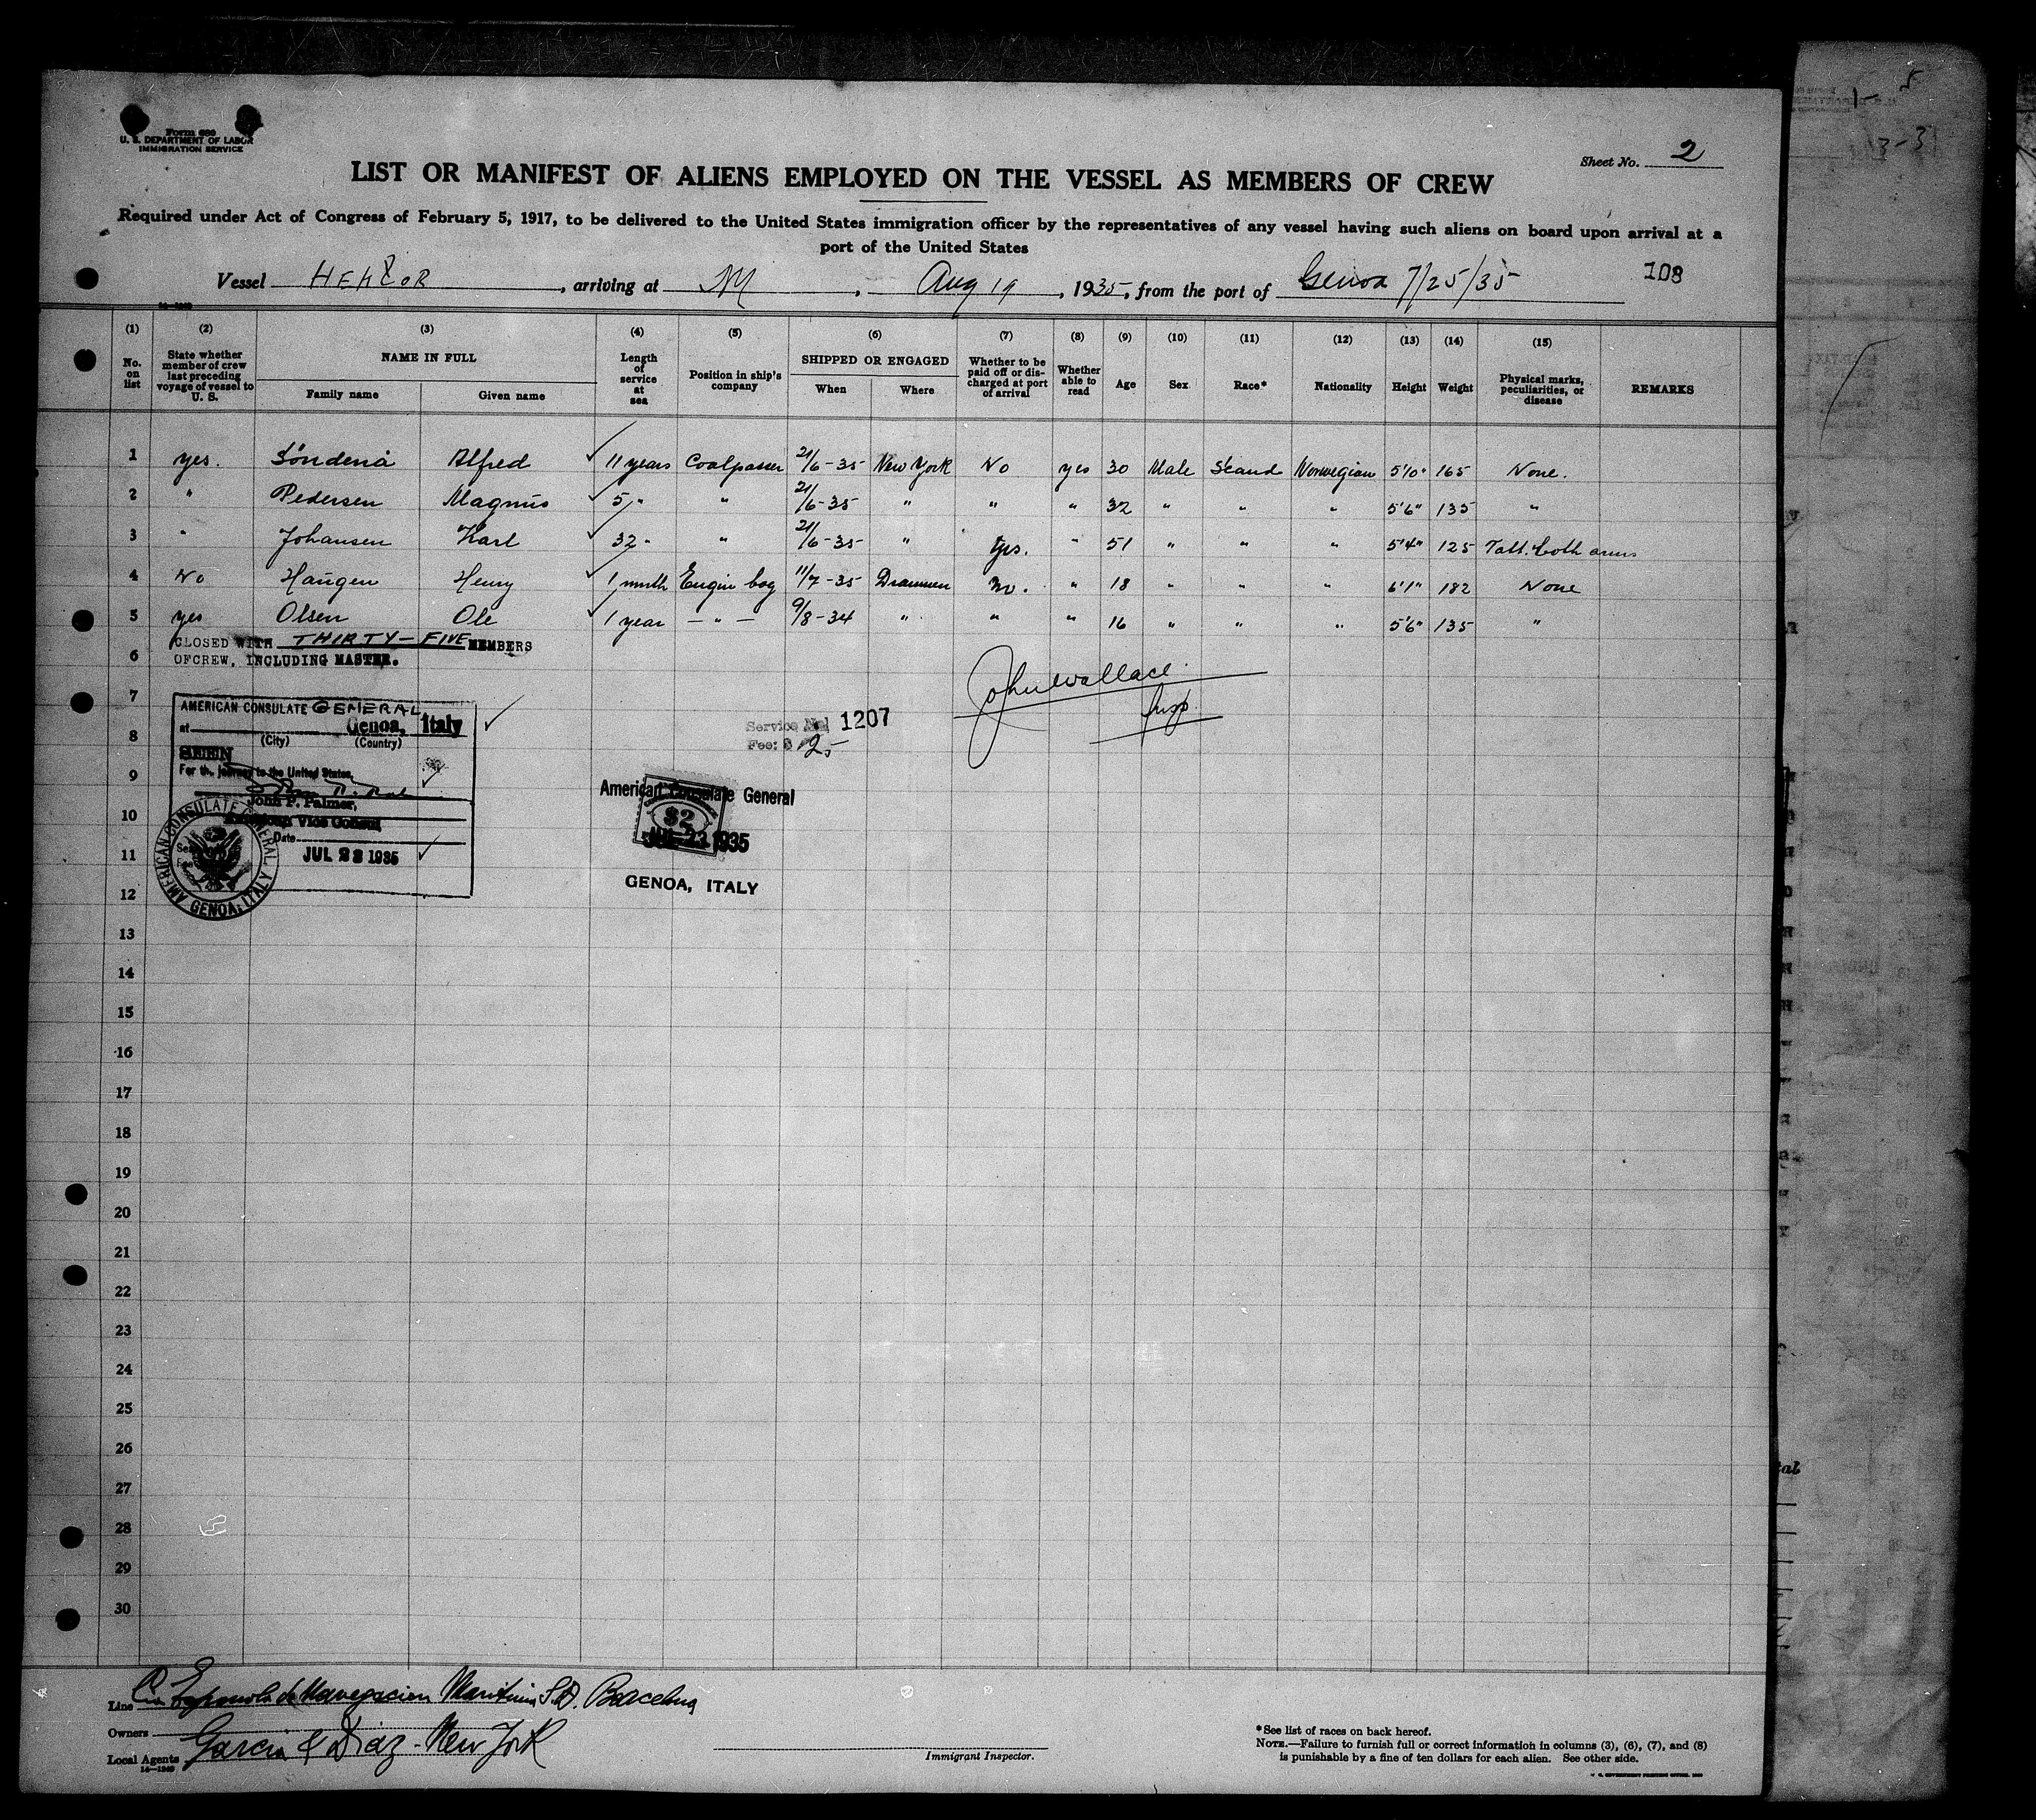 Form 680
U. S. DEPARTMENT OF LABOR
IMMIGRATION SERVICE
Sheet No. 2
LIST OR MANIFEST OF ALIENS EMPLOYED ON THE VESSEL AS MEMBERS OF CREW
Required under Act of Congress of February 5, 1917, to be delivered to the United States immigration officer by the representatives of any vessel having such aliens on board upon arrival at a
port of the United States
Vessel HEKTOR, arriving at M, Aug 19, 1935, from the port of Genoa 7/25/35 108
(1) (2) (3) (4) (5) (6) (7) (8) (9) (10) (11) (12) (13) (14) (15)
No. on list
State whether member of crew last preceding voyage of vessel to U. S.
NAME IN FULL
Family name Given name
Length of service at sea
Position in ship's company
SHIPPED OR ENGAGED
When Where
Whether to be paid off or discharged at port of arrival
Whether able to read
Age
Sex
Race*
Nationality
Height
Weight
Physical marks, peculiarities, or disease
REMARKS
1 yes. Söndenå Alfred 11 years Coalpasser 21/6-35 New York No yes 30 Male Scand Norwegian 5'10" 165 None.
2 " Pedersen Magnus 5 " " 21/6-35 " " " 32 " " " 5'6" 135 "
3 " Johansen Karl 32 " " 21/6-35 " Yes. " 51 " " " 5'4" 125 Tatt. both arms
4 No Haugen Henry 1 month Engin boy 11/7-35 Drammen No. " 18 " " " 6'1" 182 None
5 yes Olsen Ole 1 year - " - 9/8-34 " " " 16 " " " 5'6" 135 "
CLOSED WITH THIRTY-FIVE MEMBERS
6 OFCREW, INCLUDING MASTER.
John Wallace
Insp.
7
AMERICAN CONSULATE GENERAL
at Genoa, Italy
(City) (Country)
SEEN
For the journey to the United States.
John P. Palmer,
American Vice Consul
Date
JUL 23 1935
AMERICAN CONSULATE GENERAL GENOA, ITALY
Service No. 1207
Fee: $
American Consulate General
$2
JUL 23 1935
GENOA, ITALY
8
9
10
11
12
13
14
15
16
17
18
19
20
21
22
23
24
25
26
27
28
29
30
Line Cia Española de Navegacion Maritima S.A. Barcelona
Owners
Local Agents Garcia & Diaz - New York
14-1240
Immigrant Inspector.
*See list of races on back hereof.
NOTE.—Failure to furnish full or correct information in columns (3), (6), (7), and (8)
is punishable by a fine of ten dollars for each alien. See other side.